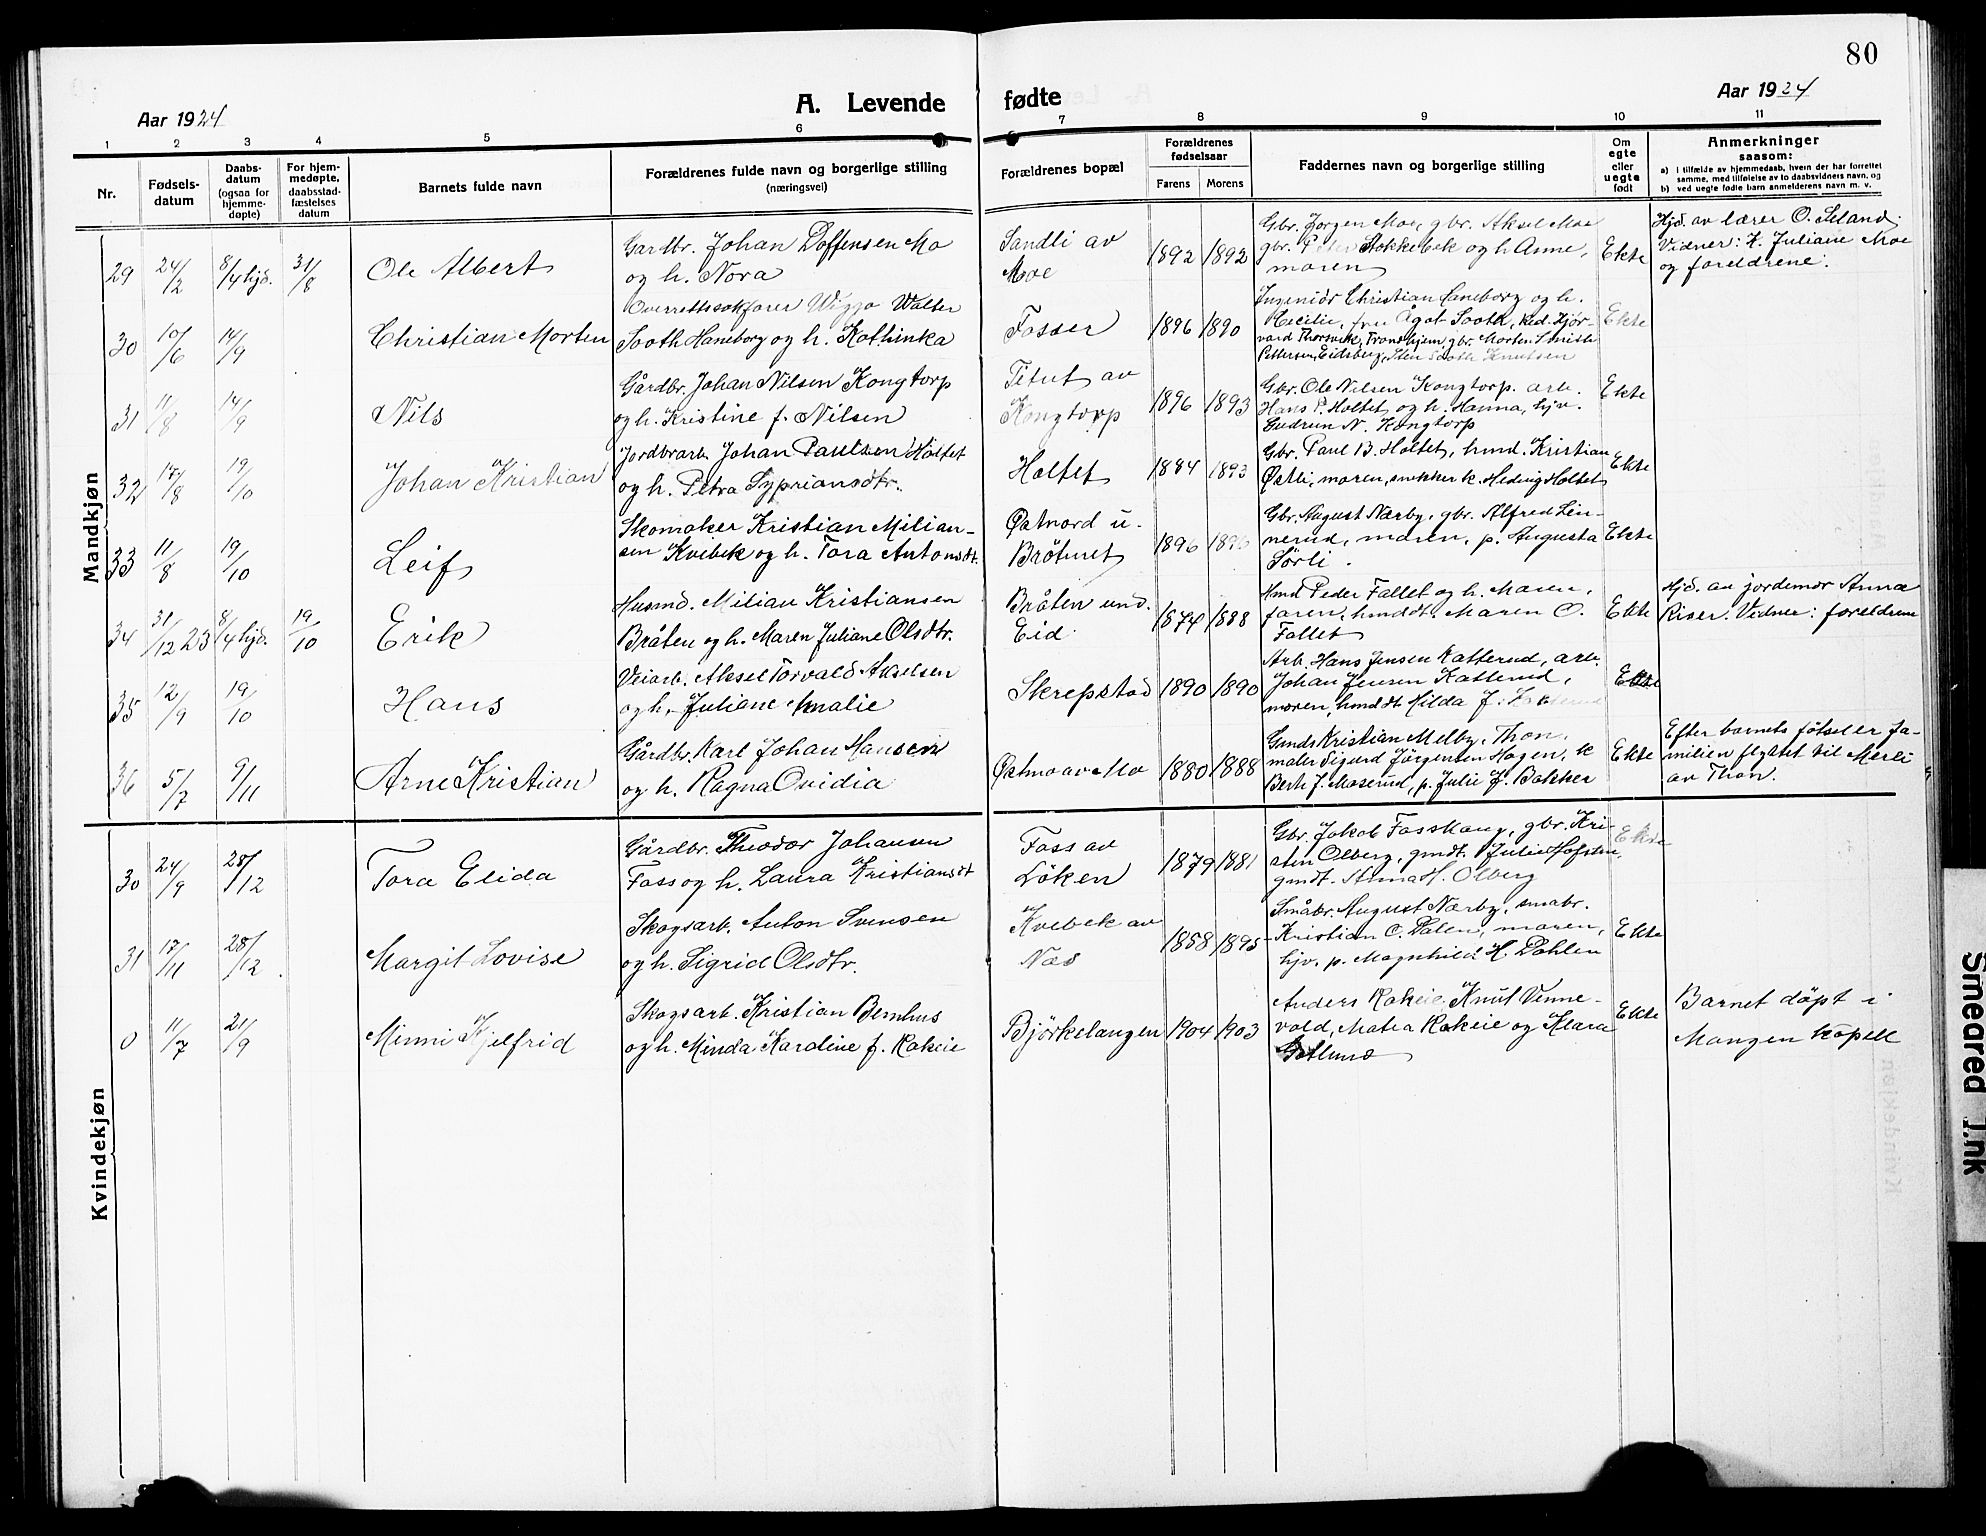 80
Aar 1924
A. Levende fødte
Aar 1924
1 2 3 4 5 6 7 8 9 10 11
Nr.
Fødsels-
datum
Daabs-
datum
(ogsaa for
hjemme-
døpte)
For hjem-
medøpte,
daabsstad-
fæstelses
datum
Barnets fulde navn
Forældrenes fulde navn og borgerlige stilling
(næringsvei)
Forældrenes bopæl
Forældrenes
fødselsaar
Farens Morens
Faddernes navn og borgerlige stilling
Om
egte
eller
uegte
født
Anmerkninger
saasom:
a) i tilfælde av hjemmedaab, hvem der har forrettet
samme, med tilføielse av to daabsvidners navn, og
b) ved uegte fødte barn anmelderens navn m. v.
Mandkjøn
29 24/2 8/4 hjd. 31/8 Ole Albert
Gardbr. Johan Doffensen Mo
og h. Nora
Sandli av
Moe
1892 1892
Gbr. Jørgen Moe, gbr. Aksel Moe
gbr. Peder Stokkebek og h. Anne,
moren
Ekte
Hjd. av lærer O. Seland.
Vidner: K. Juliane Moe
og foreldrene.
30 10/6 14/9 Christian Morten
Overrettssakfører Wiggo Walter
Sooth Haneborg og h. Kathinka
Fosser
1896 1890
Ingeniör Christian Haneborg og h.
Cecilie, fru Ågot Sooth, Ked. Hjör-
vard Thorsvik, Trondhjem, gbr. Morten
Pettersen, Eidsberg, Sooth Knutsen
Ekte
31 11/8 14/9 Nils
Gårdbr. Johan Nilsen Kongtorp
og h. Kristine f. Nilsen
Titut av
Kongtorp
1896 1893
Gbr. Ole Nilsen Kongtorp. arb.
Hans P. Holtet og h. Hanna, hjv.
Gudrun N. Kongtorp
Ekte
32 17/8 19/10 Johan Kristian
Jordbrarb. Johan Paulsen Holtet
og h. Petra Sypriansdtr.
Holtet
1884 1893
Gbr. Paul B. Holtet, hmd. Kristian
Østli, moren, snekker k. Hedvig Holtet
Ekte
33 11/8 19/10 Leif
Skomaker Kristian Milian-
sen Kvebek og h. Tora Antonsdt.
Østnord u.
Bråturet
1896 1896
Gbr. August Nærby, gbr. Alfred Lin-
nerud, moren, p. Augusta
Sörli.
Ekte
34 31/12 23 8/4 hjd. 19/10 Erik
Husmd. Milian Kristiansen
Bråten og h. Maren Juliane Olsdtr.
Bråten und.
Eid.
1874 1888
Hmd. Peder Fallet og h. Maren,
faren, hmddt. Maren O.
Fallet
Ekte
Hjd. av jordemor Anna
Riser. Vidner: foreldrene
35 12/9 19/10 Hans
Veiarb. Aksel Torvald Akselsen
og h. Juliane Amalie
Skrepstad
1890 1890
Arb. Hans Jensen Katterud, arb.
Johan Jensen Katterud,
moren, hmddt. Hilda J.
Ekte
36 5/7 9/11 Arne Kristian
Gårdbr. Karl Johan Hansen
og h. Ragna Ovidia
Østmo av Mo
1880 1888
Gmds Kristian Melby, Thon,
maler Sigurd Jörgensen Hagen, k
Berte J. Moserud, p. Julie J. Bakker
Ekte
Efter barnets fötsel er fa-
milien flyttet til Mærli
av Thon.
Kvindekjøn
30 24/9 28/12 Tora Elida
Gårdbr. Theodor Johansen
Foss og h. Laura Kristiansdt
Foss av
Löken
1879 1881
Gbr. Jakob Fosskaug, gbr. Kri-
sten Olberg, gmdt. Julie Hofsten,
gmdt. Anna H. Olberg
Ekte
31 17/11 28/12 Margit Lovise
Skogsarb. Anton Svensen
og h. Sigrid Olsdtr.
Kvebek av
Næs
1858 1895
Småbr. August Nærby, småbr.
Kristian C. Dalen, moren,
hjv. p. Magnhild H. Dahlen
Ekte
0 11/7 21/9 Minni Kjelfrid
Skogsarb. Kristian Bemhus
og h. Minda Karoline f. Kakeie
Björkelangen
1904 1903
Anders Kakeie, Knut Venne-
vold, Matea Kakeie og Klara
Gotlund
Ekte
Barnet döpt i
Mangen kapell
Smeared Ink